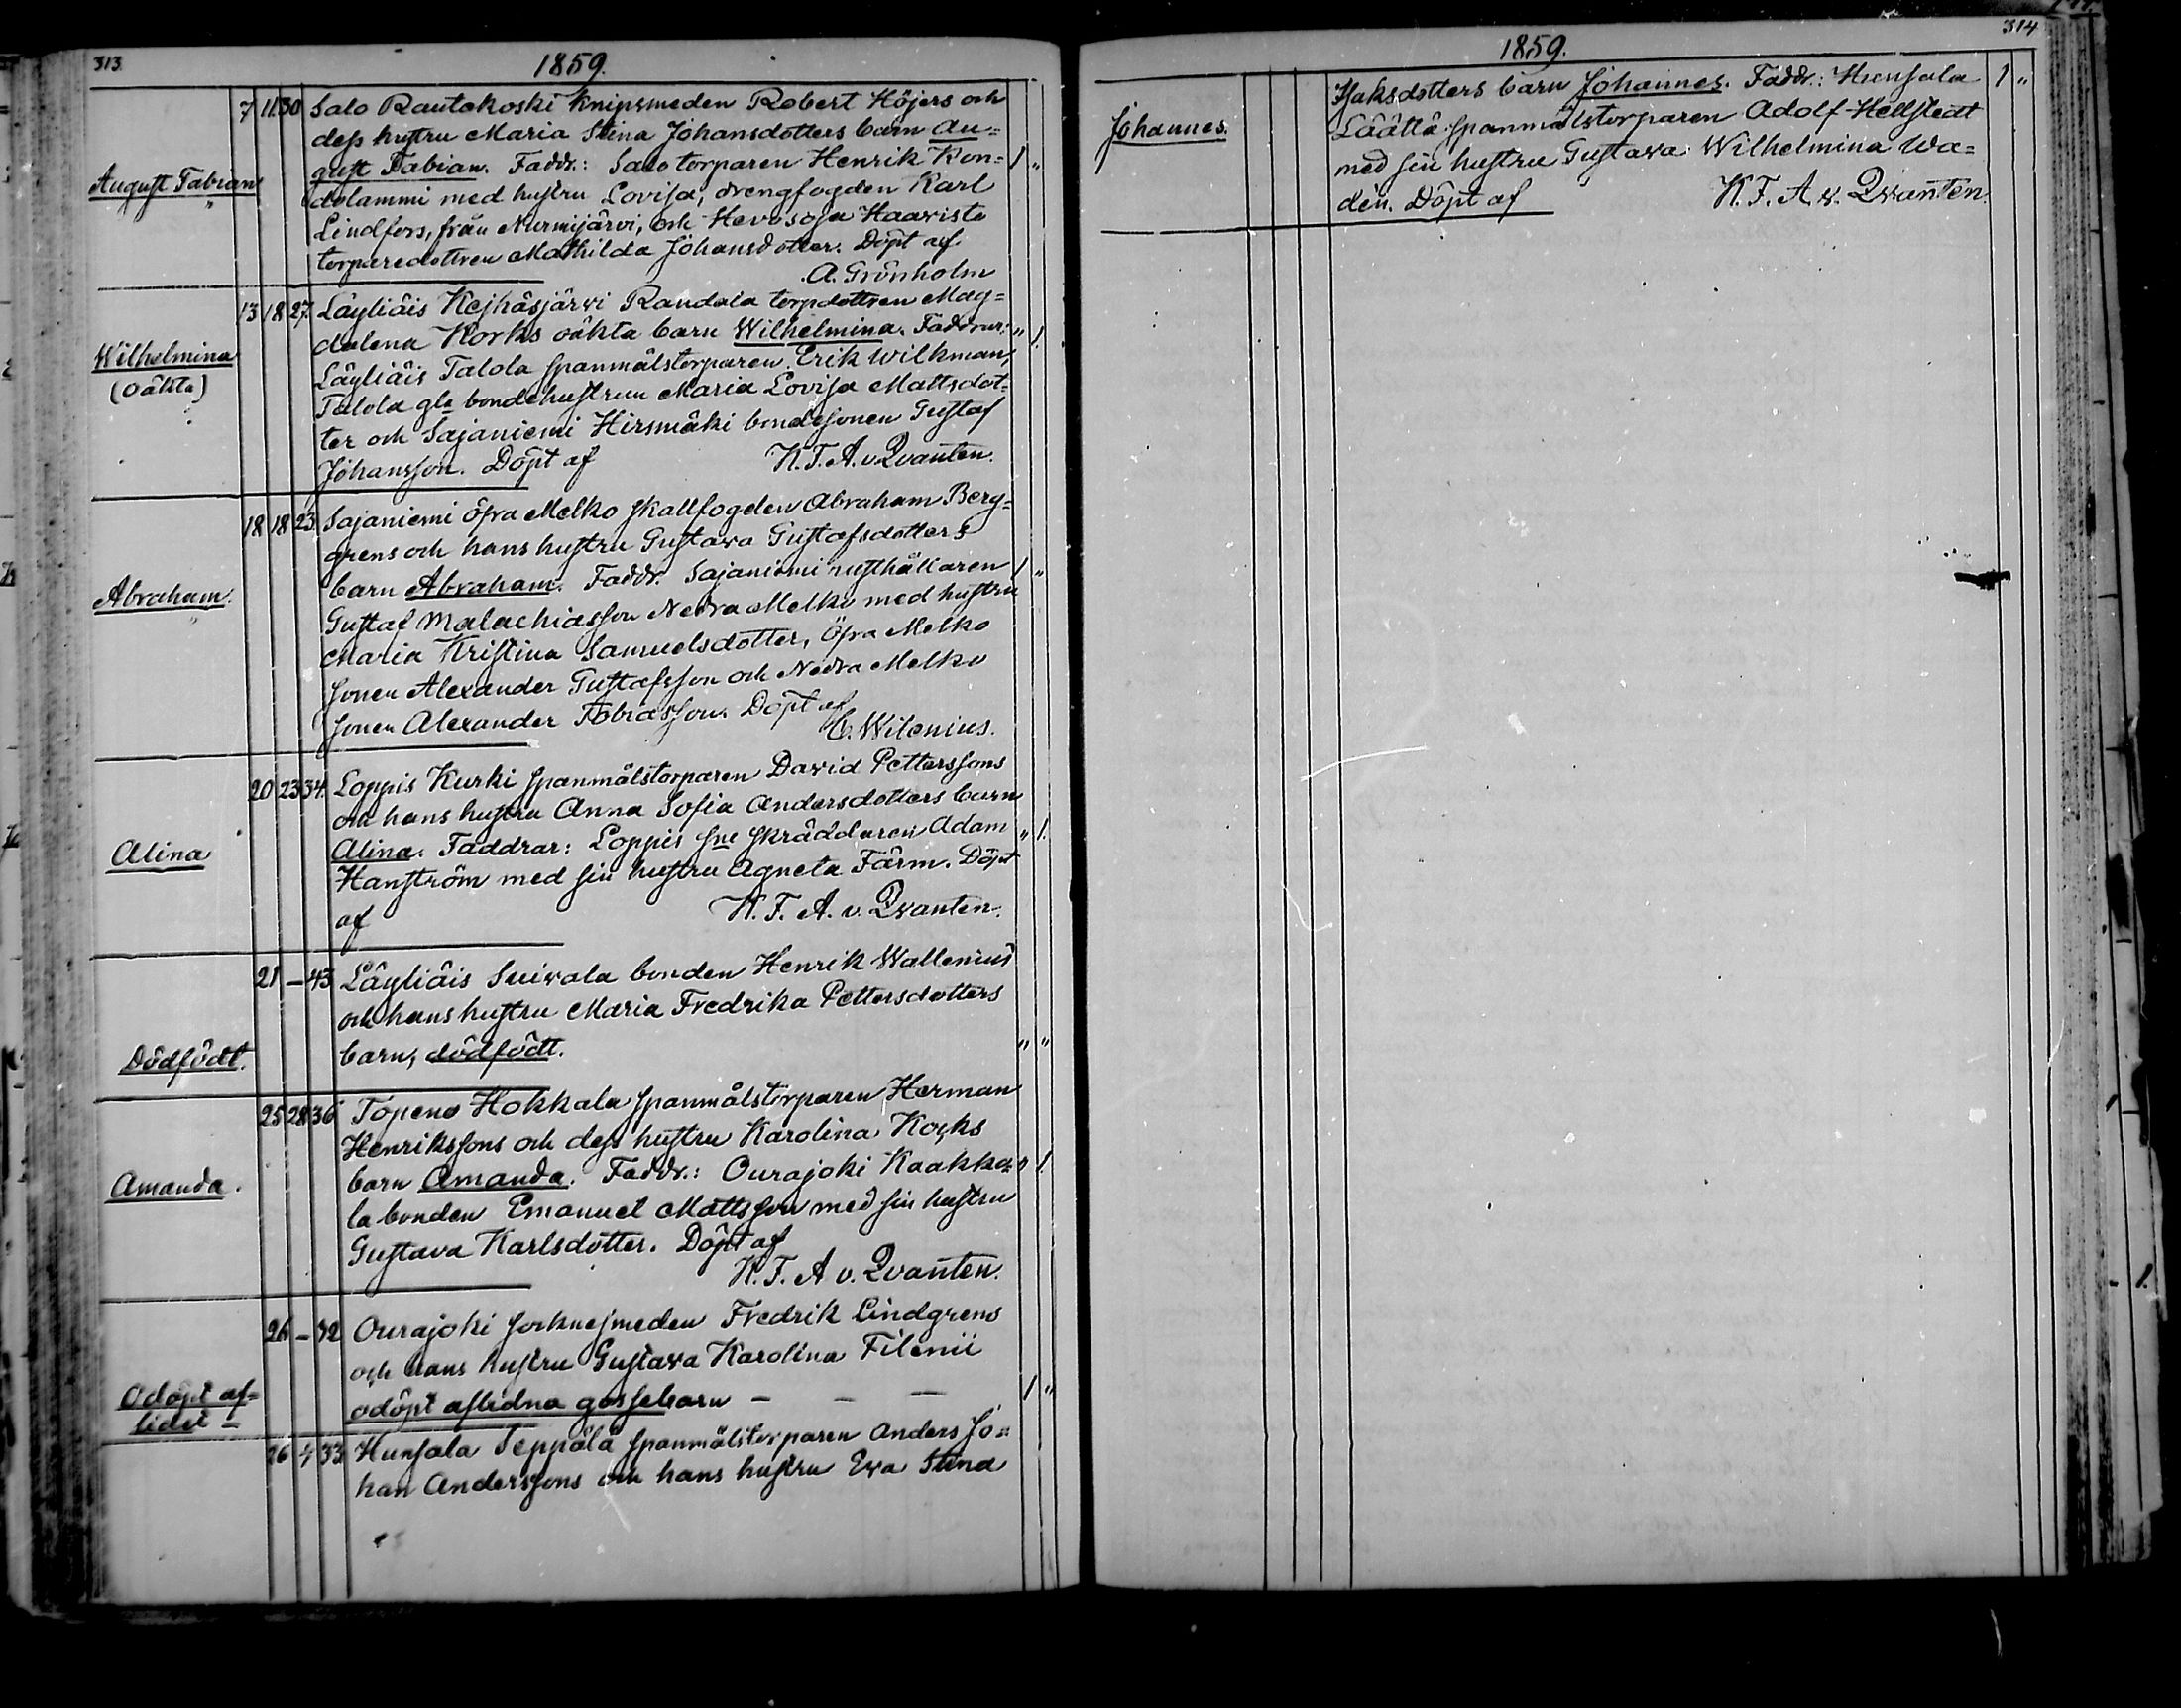 313.
1859.
7 11 30 Salo Rautakoski knipsmeden Robert Höjers och
dess hustru Maria Stina Johansdotters barn Au=
August Fabian
gust Fabian. Faddr.: Salo torparen Henrik Kon= 1 "
dolammi med hustru Lovisa, drengfogden Karl
Lindfors, från Nurmijärvi, och Hevosoja Haavisto
torparedottren Mathilda Johansdotter. Döpt af
A. Grönholm
13 18 27. Läyliäis Kejhäsjärvi Randala torpdottren Mag=
Wilhelmina
(oäkta)
dalena Korks oäkta barn Wilhelmina. Faddrar: " 1.
Läyliäis Talola spanmålstorparen Erik Wilkman,
Talola gla bondehustrun Maria Lovisa Mattsdot=
ter och Sajaniemi Hirsmäki bondesonen Gustaf
Johansson. Döpt af K. F. A. v. Qvanten.
18 18 23 Sajaniemi Öfra Melko skallfogden Abraham Berg=
grens och hans hustru Gustava Gustafsdotters
Abraham.
barn Abraham. Faddr. Sajaniemi rusthållaren 1 "
Gustaf Malachiasson Nedra Melko med hustru
Maria Kristina Samuelsdotter, Öfra Melko
sonen Alexander Gustafsson och Nedra Melko
sonen Alexander Tobiasson. Döpt af
C. Wilenius.
20 23 34. Loppis Kurki spanmålstorparen David Petterssons
och hans hustru Anna Sofia Andersdotters barn
Alina
Alina. Faddrar: Loppis sne skräddaren Adam " 1.
Hanström med sin hustru Agneta Färm. Döpt
af K. F. A. v. Qvanten.
21 – 43 Läyliäis Suivala bonden Henrik Wallenius
och hans hustru Maria Fredrika Pettersdotters
Dödfödt.
barn, dödfödt. " "
25 28 36 Topeno Hokkala spanmålstorparen Herman
Henrikssons och dess hustru Karolina Korks
Amanda.
barn Amanda. Faddr.: Ourajoki Kaakko= " 1.
la bonden Emanuel Mattsson med sin hustru
Gustava Karlsdotter. Döpt af
K. F. A v. Qvanten.
26 – 32 Ourajoki socknesmeden Fredrik Lindgrens
och hans hustru Gustava Karolina Filenii
Odöpt af=
lidet –
odöpt aflidna gossebarn – – – 1 "
26 33 Hunsala Teppälä spanmålstorparen Anders Jo=
han Anderssons och hans hustru Eva Stina
314
1859.
Johannes.
Isaksdotters barn Johannes. Faddr.: Hunsala 1 "
Läättä spanmålstorparen Adolf Hellstedt
med sin hustru Gustava Wilhelmina Wa=
dén. Döpt af K. F. A. v. Qvanten.